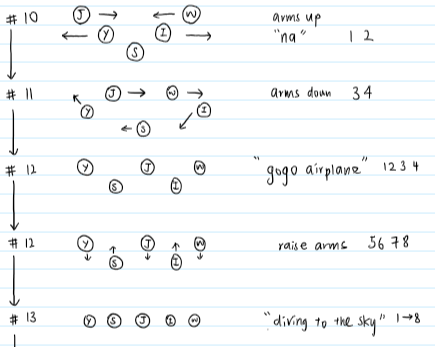 # 10 J → ← W arms up
← Y I → "na" 1 2
S
# 11 J → W → arms down 3 4
Y I
← S
# 12 Y J W "gogo airplane" 1 2 3 4
S I
# 12 Y J W raise arms 5 6 7 8
S I
# 13 Y S J I W "diving to the sky" 1→8